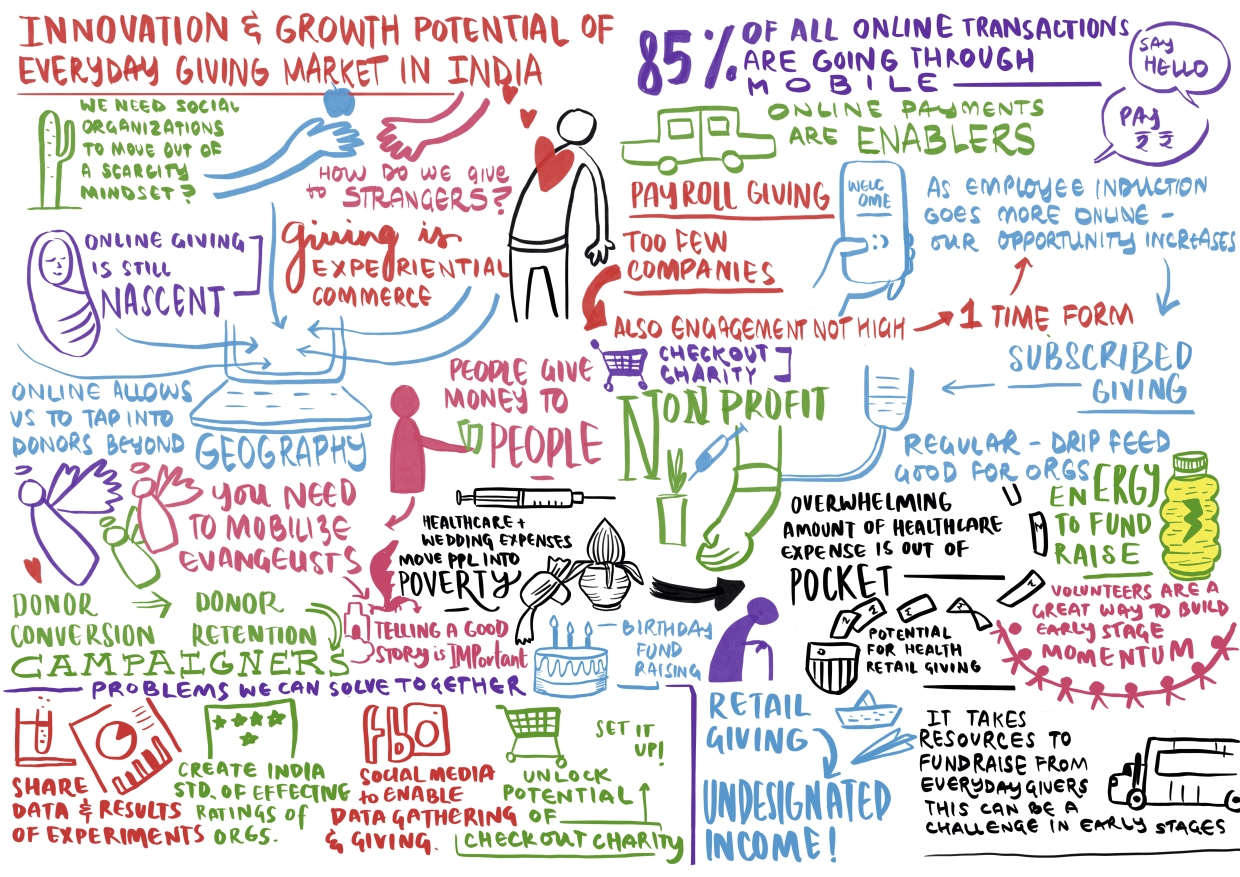 INNOVATION & GROWTH POTENTIAL OF
EVERYDAY GIVING MARKET IN INDIA
WE NEED SOCIAL
ORGANIZATIONS
TO MOVE OUT OF
A SCARCITY
MINDSET?
HOW DO WE GIVE
to STRANGERS?
ONLINE GIVING
IS STILL
NASCENT
giving is
EXPERIENTIAL
COMMERCE
ONLINE ALLOWS
US TO TAP INTO
DONORS BEYOND
GEOGRAPHY
PEOPLE GIVE
MONEY TO
PEOPLE
YOU NEED
TO MOBILIZE
EVANGELISTS
HEALTHCARE +
WEDDING EXPENSES
MOVE PPL INTO
POVERTY
DONOR
CONVERSION
DONOR
RETENTION
CAMPAIGNERS
TELLING A GOOD
STORY is IMPortant
BIRTHDAY
FUND
RAISING
85% OF ALL ONLINE TRANSACTIONS
ARE GOING THROUGH
MOBILE
SAY
HELLO
PAY
₹ ₹
ONLINE PAYMENTS
ARE ENABLERS
PAYROLL GIVING
TOO FEW
COMPANIES
WELC
OME
:)
AS EMPLOYEE INDUCTION
GOES MORE ONLINE -
OUR OPPORTUNITY INCREASES
ALSO ENGAGEMENT NOT HIGH
1 TIME FORM
CHECKOUT
CHARITY
NON PROFIT
SUBSCRIBED
GIVING
REGULAR - DRIP FEED
GOOD FOR ORGS
OVERWHELMING
AMOUNT OF HEALTHCARE
EXPENSE IS OUT OF
POCKET
ENERGY
TO FUND
RAISE
POTENTIAL
FOR HEALTH
RETAIL GIVING
VOLUNTEERS ARE A
GREAT WAY TO BUILD
EARLY STAGE
MOMENTUM
PROBLEMS WE CAN SOLVE TOGETHER
SHARE
DATA & RESULTS
OF EXPERIMENTS
CREATE INDIA
STD. OF EFFECTIVE
RATINGS of
ORGS.
fbo
SOCIAL MEDIA
to ENABLE
DATA GATHERING
& GIVING.
SET IT
UP!
UNLOCK
POTENTIAL
OF
CHECKOUT CHARITY
RETAIL
GIVING
UNDESIGNATED
INCOME!
IT TAKES
RESOURCES TO
FUNDRAISE FROM
EVERYDAY GIVERS
THIS CAN BE A
CHALLENGE IN EARLY STAGES